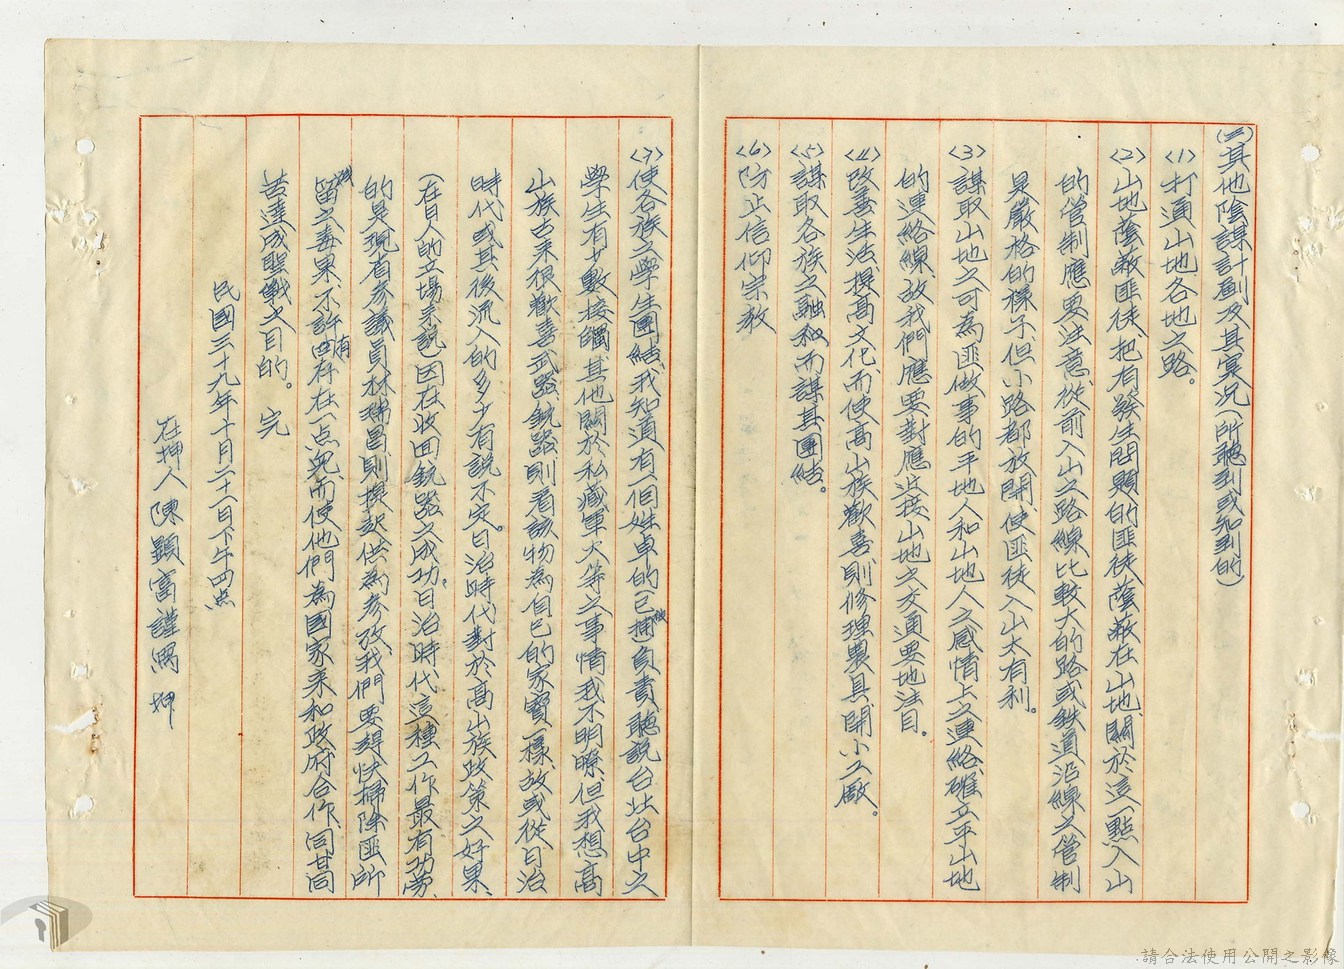 (三)其他陰謀計劃及其實況(所聽到或知到的)
〈1〉打通山地各地之路。
〈2〉山地蔭蔽匪徒、把有發生問題的匪徒蔭蔽在山地、關於這一點入山
的管制應要注意、從前入山之路線比較大的路或鉄道沿線之管制
是嚴格的樣子、但小路都放開、使匪徒入山太有利。
〈3〉謀取山地之可為匪做事的平地人和山地人之感情上之連絡、確立平山地
的連絡線、故我們應要對應近接山地之交通要地注目。
〈4〉改善生活、提高文化、而使高山族歡喜則修理農具、開小工廠。
〈5〉謀取各族之融和而謀其團結。
〈6〉防止信仰宗教
〈7〉使各族之學生團結、我知道有一個姓卓的已被捕負責、聽説台北台中之
學生有少數接觸、其他關於私藏軍火等之事情我不明瞭、但我想高
山族古來很歡喜武器、銃器則看該物為自己的家寶一樣、故或從日治
時代或其後流入的多少有説不定。日治時代對於高山族政策之好果、
(在日人的立場來説)因在收回銃器之成功。日治時代這種工作最有功勞
的是現省參議員林瑞昌則提起供為參攷、我們要趕快掃除匪所
留之毒果、不許有存在一点兒、而使他們為國家來和政府合作、同甘同
苦達成聖戰之目的。 完
民國三十九年十月二十一日下午四點
在押人陳顯富謹寫 押
請合法使用公開之影像